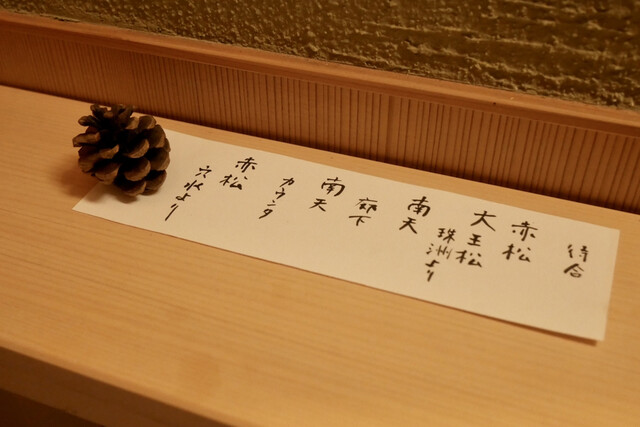 待合
赤松
大王松
珠洲より
南天
廊下
南天
カウンタ
赤松
穴水より